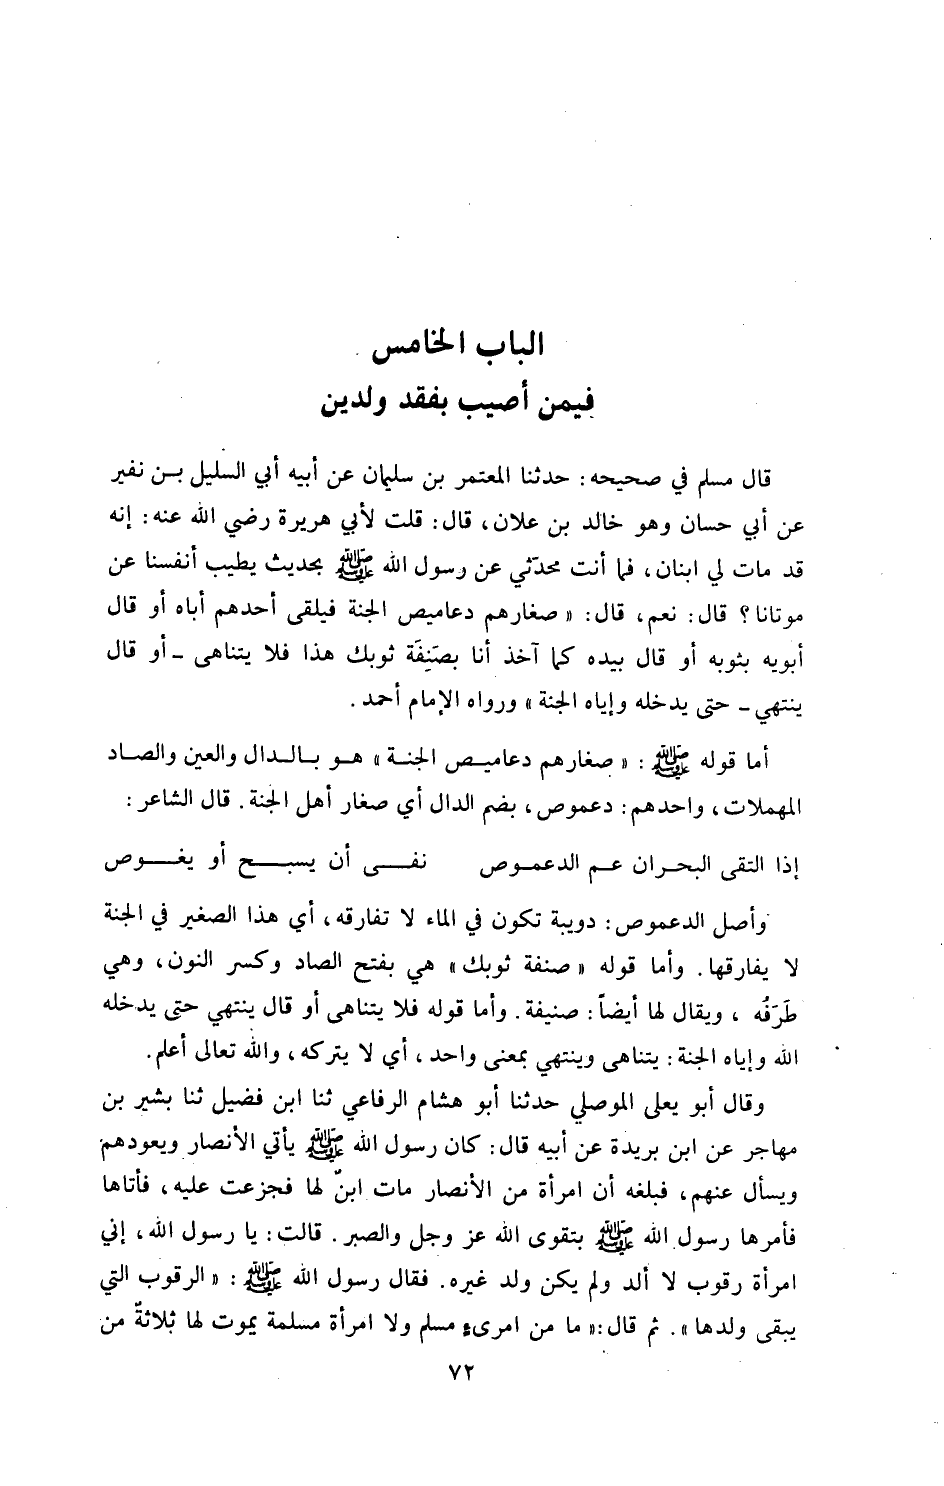 الباب الخامس
فيمن أصيب بفقد ولدين
قال مسلم في صحيحه: حدثنا المعتمر بن سليمان عن أبيه أبي السليل بن نفير
عن أبي حسان وهو خالد بن علان، قال: قلت لأبي هريرة رضي الله عنه: إنه
قد مات لي ابنان، فما أنت محدّثي عن رسول الله ﷺ بحديث يطيب أنفسنا عن
موتانا؟ قال: نعم، قال: « صغارهم دعاميص الجنة فيلقى أحدهم أباه أو قال
أبويه بثوبه أو قال بيده كما آخذ أنا بصَنِفَة ثوبك هذا فلا يتناهى ـ أو قال
ينتهي ـ حتى يدخله وإياه الجنة » ورواه الإمام أحمد.
أما قوله ﷺ: « صغارهم دعاميص الجنة » هو بالدال والعين والصاد
المهملات، واحدهم: دعموص، بضم الدال أي صغار أهل الجنة. قال الشاعر:
إذا التقى البحران عم الدعموص نفى أن يسبح أو يغوص
وأصل الدعموص: دويبة تكون في الماء لا تفارقه، أي هذا الصغير في الجنة
لا يفارقها. وأما قوله « صنفة ثوبك » هي بفتح الصاد وكسر النون، وهي
طَرَفُه ، ويقال لها أيضاً: صنيفة. وأما قوله فلا يتناهى أو قال ينتهي حتى يدخله
الله وإياه الجنة: يتناهى وينتهي بمعنى واحد، أي لا يتركه، والله تعالى أعلم.
وقال أبو يعلى الموصلي حدثنا أبو هشام الرفاعي ثنا ابن فضيل ثنا بشير بن
مهاجر عن ابن بريدة عن أبيه قال: كان رسول الله ﷺ يأتي الأنصار ويعودهم
ويسأل عنهم، فبلغه أن امرأة من الأنصار مات ابنٌ لها فجزعت عليه، فأتاها
فأمرها رسول الله ﷺ بتقوى الله عز وجل والصبر. قالت: يا رسول الله، إني
امرأة رقوب لا ألد ولم يكن ولد غيره. فقال رسول الله ﷺ: « الرقوب التي
يبقى ولدها ». ثم قال:« ما من امرىء مسلم ولا امرأة مسلمة يموت لها ثلاثةٌ من
٧٢